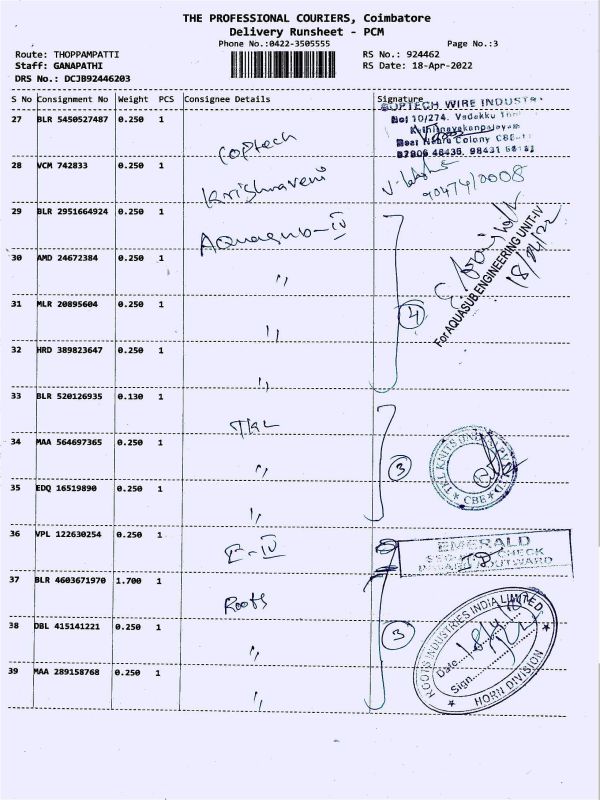 THE PROFESSIONAL COURIERS, Coimbatore
Delivery Runsheet - PCM
Phone No.:0422-3505555 Page No.:3
Route: THOPPAMPATTI RS No.: 924462
Staff: GANAPATHI RS Date: 18-Apr-2022
DRS No.: DCJB92446203
S No Consignment No Weight PCS Consignee Details Signature
27 BLR 5450527487 0.250 1 Coptech
COPTECH WIRE INDUSTR
No: 10/274, Vadakku
Near Nehru Colony CBE
28 VCM 742833 0.250 1 Krishnaveni
29 BLR 2951664924 0.250 1 Aquasub-IV
For AQUASUB ENGINEERING UNIT-IV
18/04/22
30 AMD 24672384 0.250 1 "
31 MLR 20895604 0.250 1 "
4
32 HRD 389823647 0.250 1 "
33 BLR 520126935 0.130 1 TKL
34 MAA 564697365 0.250 1 "
3
TKL KNITS INDIA PVT LTD
CBE
35 EDQ 16519890 0.250 1 "
36 VPL 122630254 0.250 1 E-IV
EMERALD
37 BLR 4603671970 1.700 1 Roots
38 DBL 415141221 0.250 1 "
3
ROOTS INDUSTRIES INDIA LIMITED
Date
Sign
HORN DIVISION
39 MAA 289158768 0.250 1 "